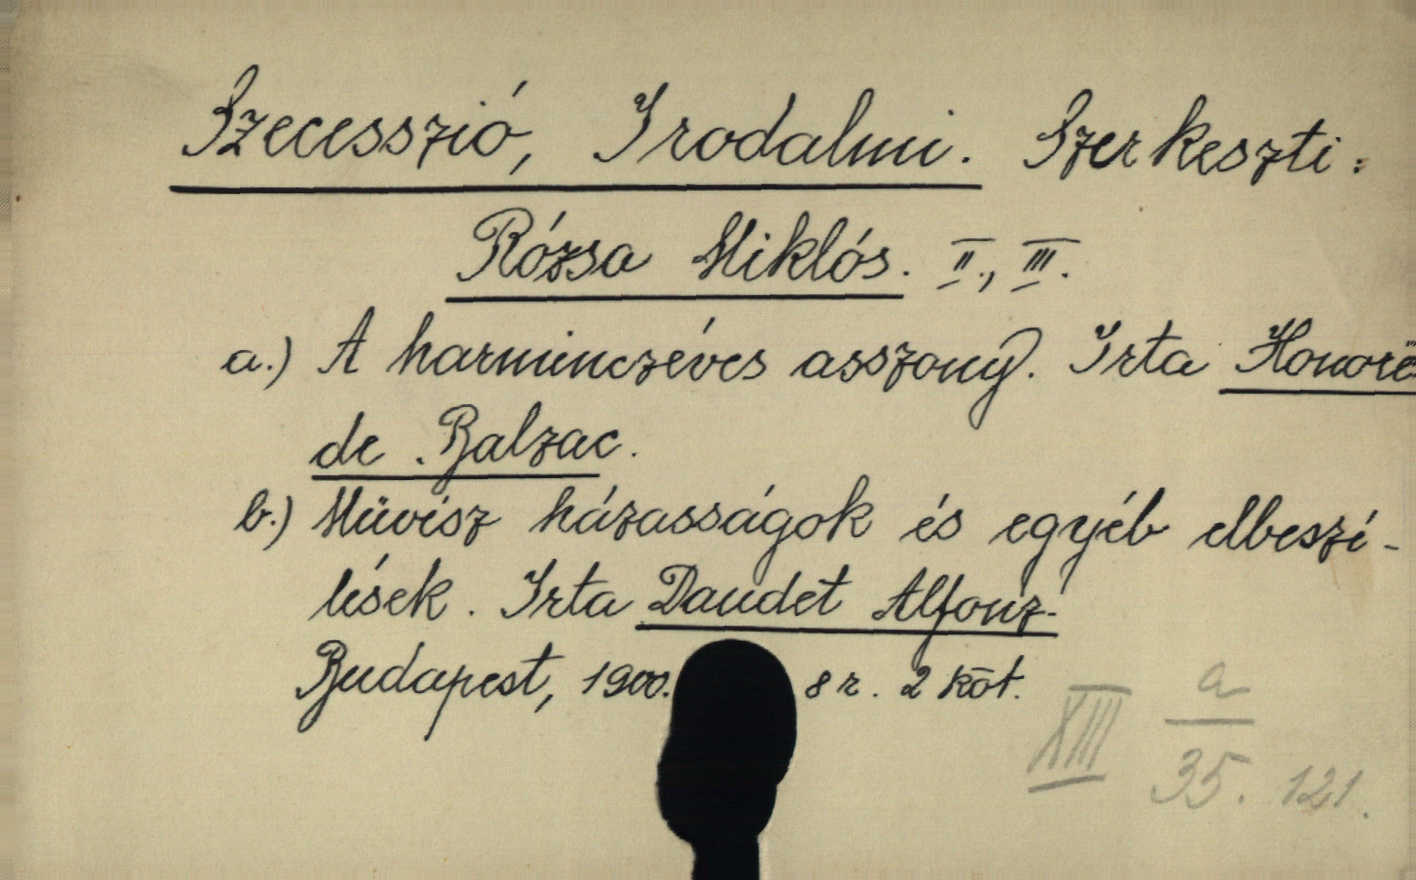 Szecesszió, Irodalmi. Szerkeszti:
Rózsa Miklós. II., III.
a.) A harminczéves asszony. Irta Honoré
de Balzac.
b.) Müvész házasságok és egyéb elbeszé-
lések. Irta Daudet Alfonz.
Budapest, 1900. 8 r. 2 köt.
XIII a
35. 121.